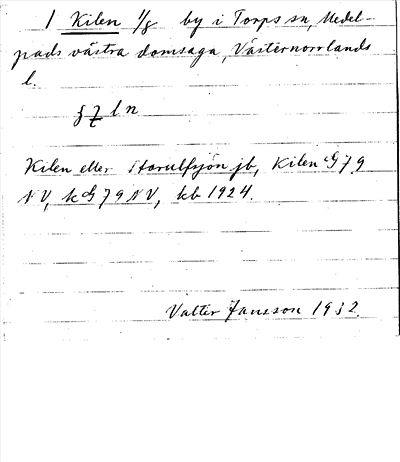 1 Kilen 1/8 by i Torps sn, Medel-
pads västra domsaga, Västernorrlands
l.
Kilen eller Storulfsjön jb, Kilen G79
NV, kG79NV, kb 1924.
Valter Jansson 1932.